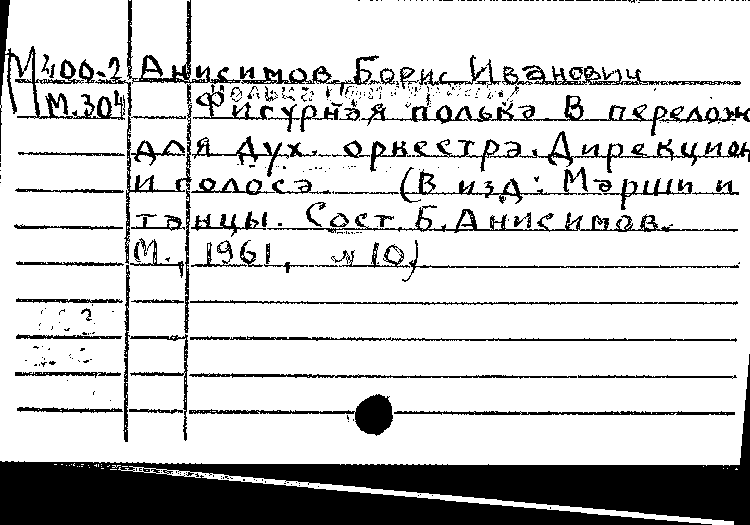 М400-2 Анисимов Борис Иванович
М.304 Фигурная полька. В перелож
для дух. оркестра. Дирекцион
и голоса. (В изд: Марши и
танцы. Сост. Б. Анисимов.
М., 1961, № 10)